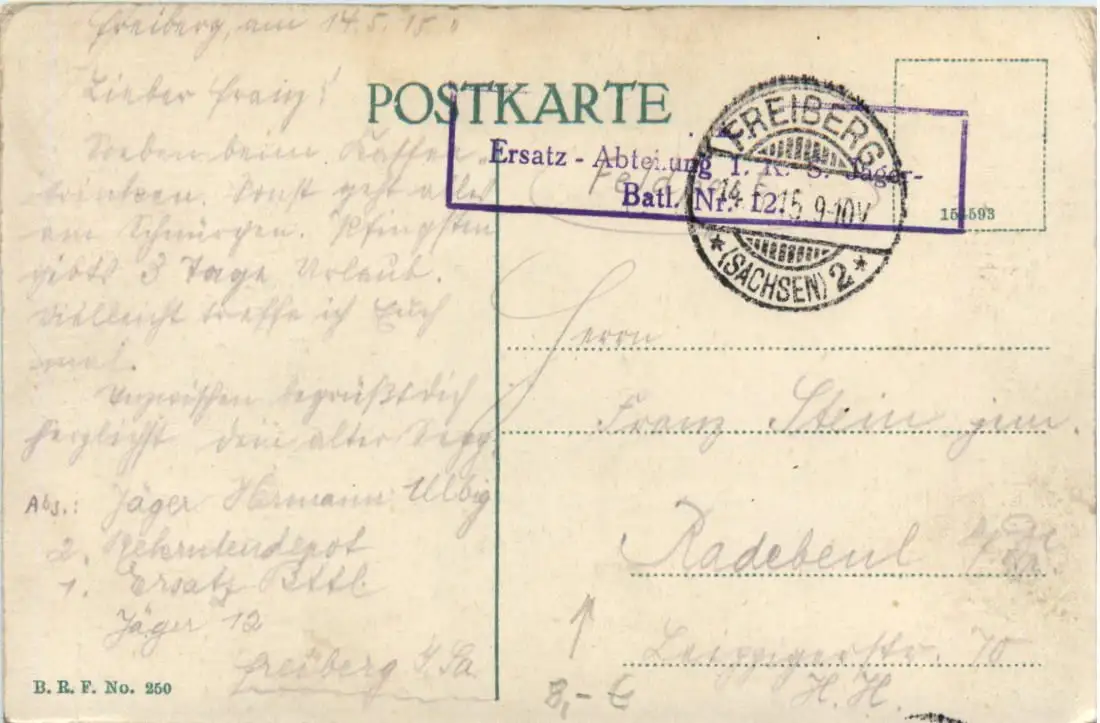 Freiberg, am 14.5.15.
Lieber Franz!
Soeben beim Kaffee-
trinken. Sonst geht alles
am Schnürchen. Pfingsten
gibts 3 Tage Urlaub.
Vielleicht treffe ich Euch
mal.
Inzwischen begrüßt dich
herzlichst dein alter Sepp.
Abs.: Jäger Hermann Ulbig
2. Rekrutendepot
1. Ersatz Battl
Jäger 12
Freiberg i/Sa
B. R. F. No. 250
POSTKARTE
Ersatz - Abteilung 1. K. S. Jäger-
Batl. Nr. 12.
FREIBERG
14.5.15. 9-10V
* (SACHSEN) 2 *
154593
Herrn
Franz Stein jun.
Radebeul
Leipzigerstr. 70
H. H.
8,- €